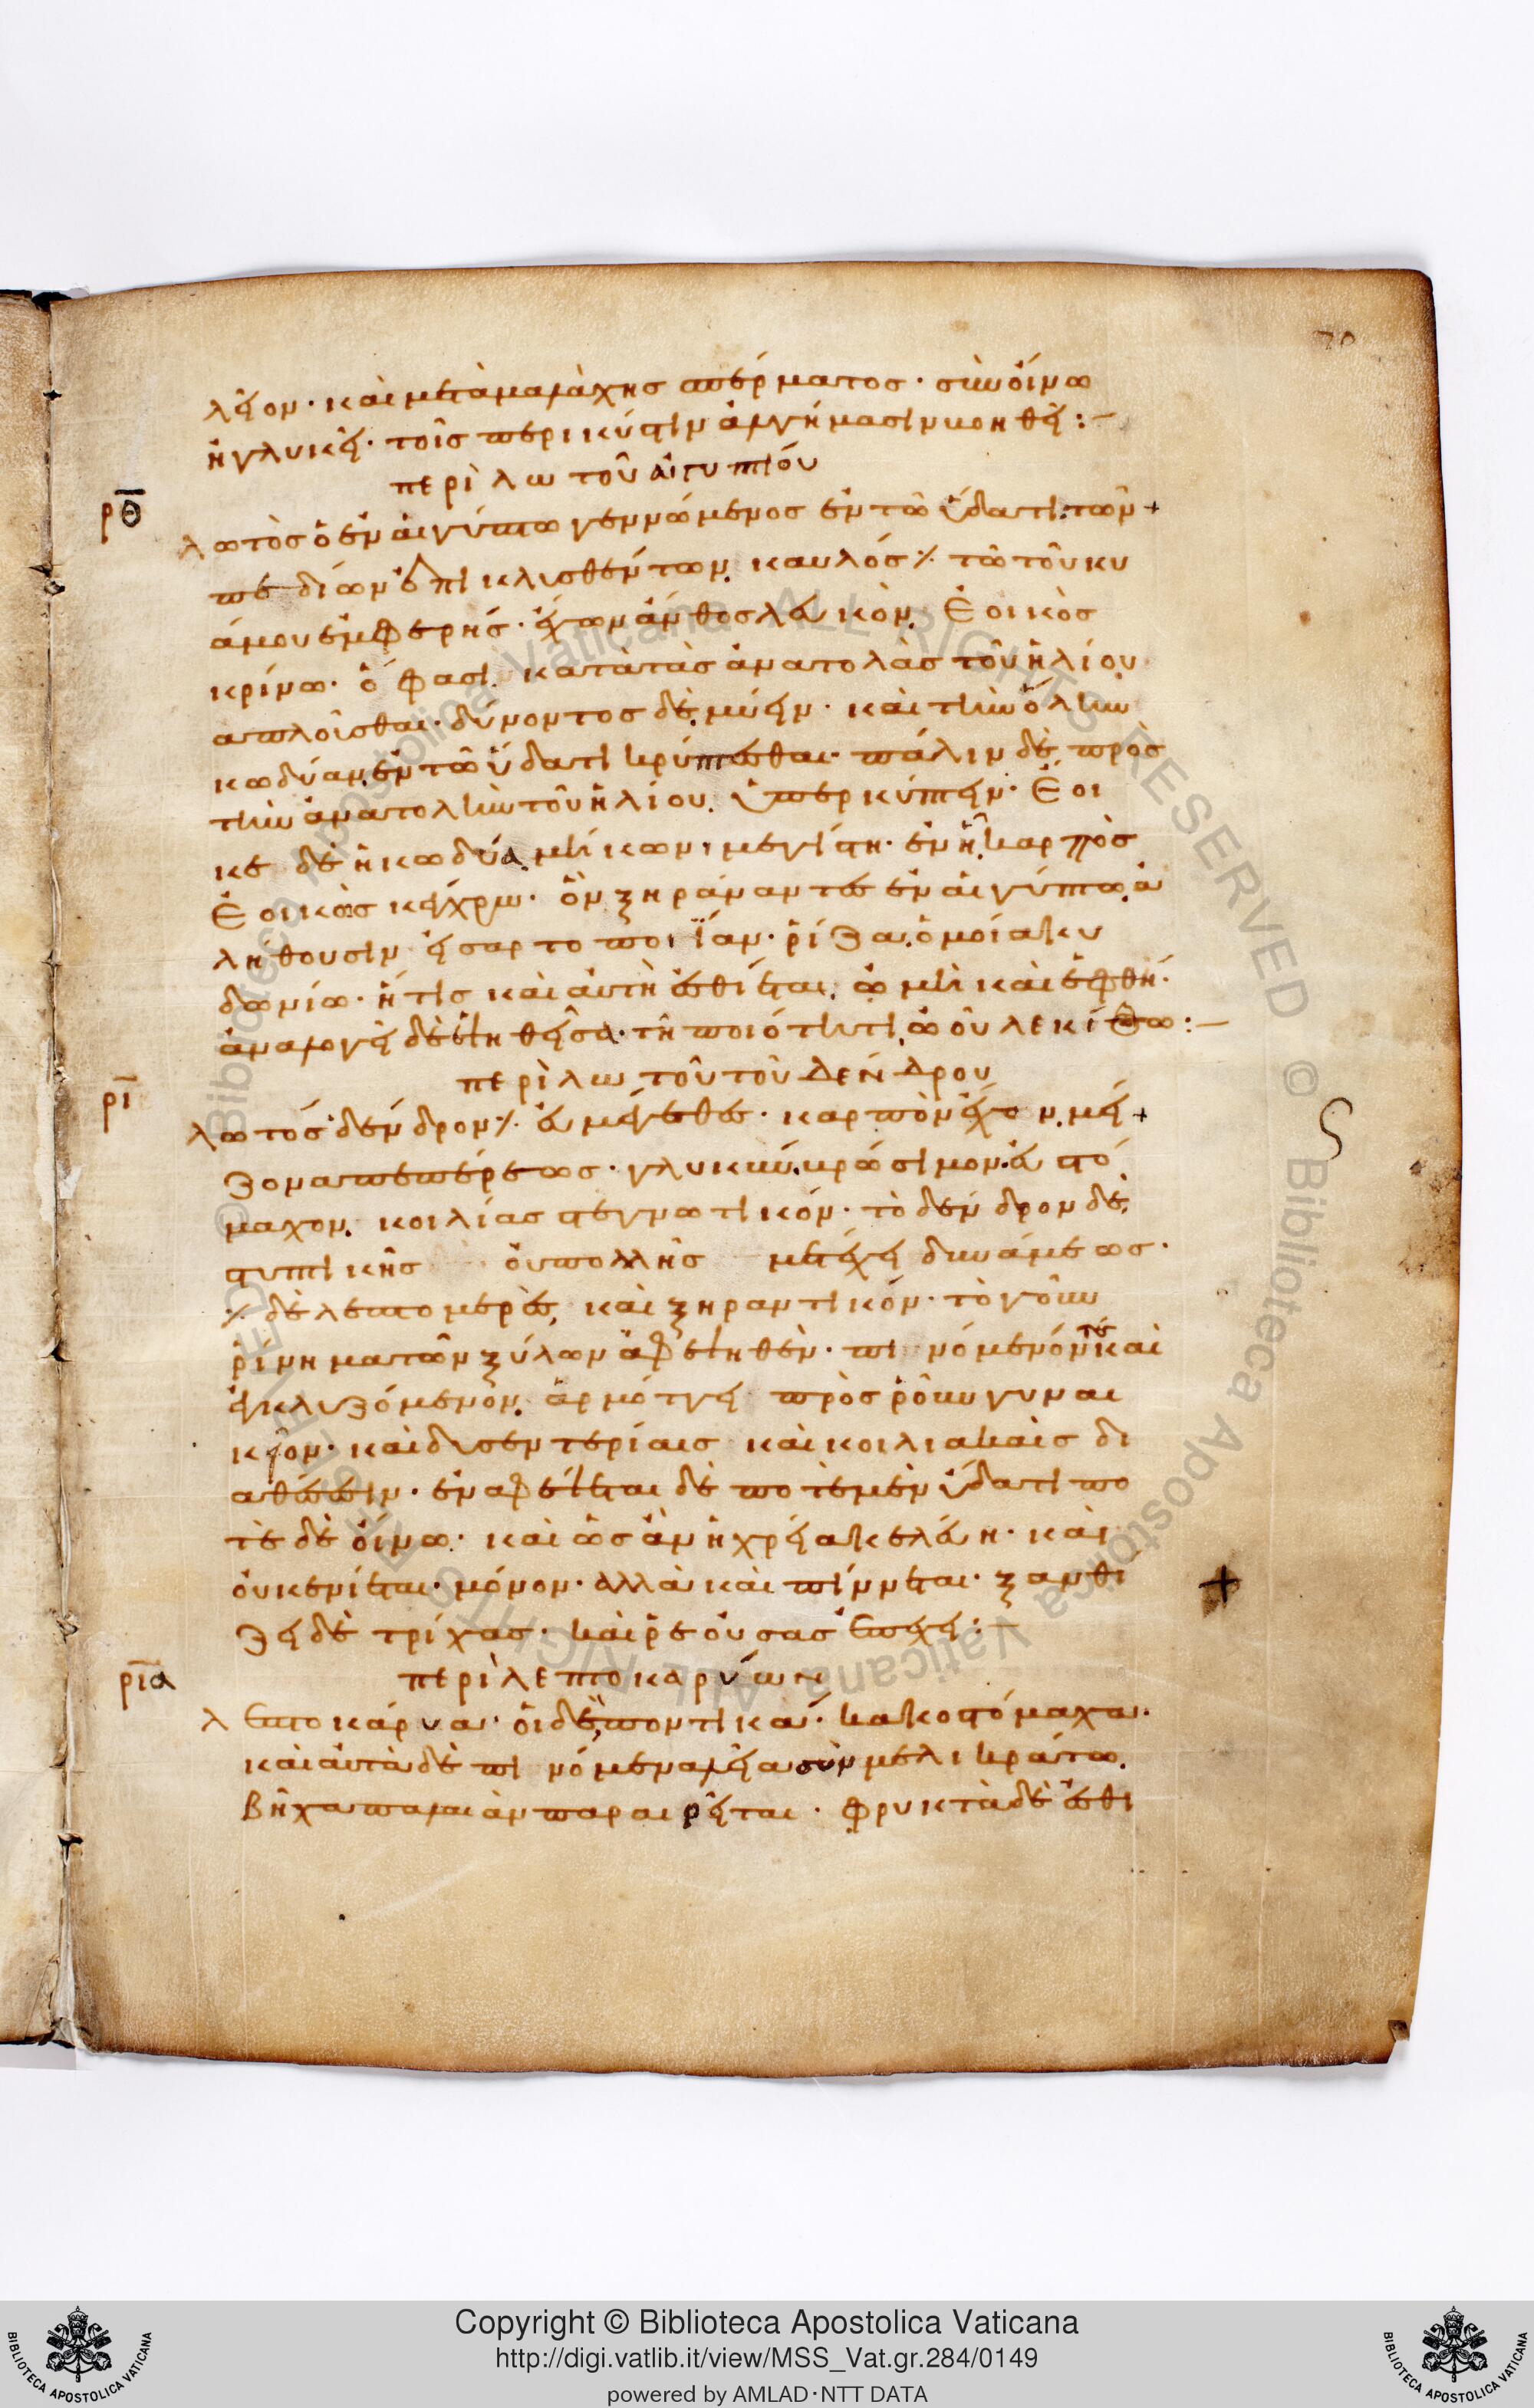 70
λεῖον· καὶ μετὰ μαλάχης σπέρματος· σὺν οἴνω
ἢ γλυκεῖ· τοῖς περὶ κύστιν ἀλγήμασιν βοηθεῖ:–
περὶ λωτοῦ αἰγυπτίου
ρθ
λωτὸς ὁ ἐν αἰγύπτω γεννώμενος ἐν τῶ ὕδατι τῶν
πεδίων ἐπικλυσθέντων. καυλός ⁒ τῶ τοῦ κυ
άμου ἐμφερής· ἔχων ἄνθος λευκὸν. ἐοικὸς
κρίνω· ὅ φασι. κατὰ τὰς ἀνατολὰς τοῦ ἡλίου
απλοῦσθαι· δύνοντος δὲ μύειν· καὶ τὴν ὅλην
κωδύαν ἐν τῶ ὕδατι κρύπτεσθαι· πάλιν δὲ πρὸς
τὴν ἀνατολὴν τοῦ ἡλίου. ὑπερκύπτειν· ἔοι
κε δὲ ἡ κωδύα μήκων μεγίστη· ἐν ἧ καρπὸς
ἐοικὼς κέγχρω· ὃν ξηράναντες ἐν αἰγύπτω ἀ
λήθουσιν εἰς αρτοποιΐαν· ῥίζα ὁμοία κυ
δωνίω· ἥτις καὶ αὐτὴ ἐσθίεται. ὠμὴ καὶ ἑφθή·
ἀναλογεῖ δὲ ἑψηθεῖσα τῆ ποιότητι ὠοῦ λεκίθω:–
περὶ λωτοῦ τοῦ δένδρου
ρι
λωτός δένδρον ⁒ εὐμέγεθες· καρπὸν ἔχον. μεί
ζονα πεπέρεως· γλυκὺν βρώσιμον εὐστό
μαχον. κοιλίας στεγνωτικόν· τὸ δένδρον δὲ
στυπτικῆς οὐ πολλῆς μετέχει δυνάμεως·
⁒ δὲ λεπτομερὲς, καὶ ξηραντικόν· τὸ γοῦν
ῥίνημα τῶν ξύλων ἀφεψηθὲν· πινόμενόν τε καὶ
ἐγκλυζόμενον. ἁρμόττει πρὸς ῥοῦν γυναι
κεῖον· καὶ δυσεντερίαις καὶ κοιλιακαὶς δι
αθέσεσιν· ἐναφέψεται δὲ ποτὲ μὲν ὕδατι πο
τὲ δὲ οἴνω· καὶ ὡς ἀν ἡ χρεία κελεύη· καὶ
οὐκ ἐνίεται· μόνον· ἀλλὰ καὶ πίννεται· ξανθί
ζει δὲ τρίχας· καὶ ῥεούσας ἐπέχει:–
περὶ λεπτοκαρύων
ρια
λεπτοκάρυα· οἱ δὲ ποντικά· κακοστόμαχα·
καὶ αὐτὰ δὲ πινόμενα λεῖα σὺν μελικράτω.
βῆχα παλαιὰν παραιρεῖται· φρυκτὰ δὲ ἐσθι
Copyright © Biblioteca Apostolica Vaticana
http://digi.vatlib.it/view/MSS_Vat.gr.284/0149
powered by AMLAD·NTT DATA
BIBLIOTECA APOSTOLICA VATICANA
BIBLIOTECA APOSTOLICA VATICANA